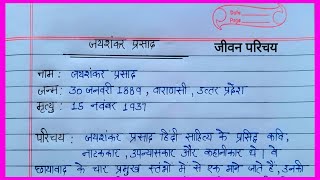 Date
Page
जयशंकर प्रसाद
जीवन परिचय
नाम : जयशंकर प्रसाद
जन्म : 30 जनवरी 1889 , वाराणसी , उत्तर प्रदेश
मृत्यु : 15 नवंबर 1937
परिचय : जयशंकर प्रसाद हिंदी साहित्य के प्रसिद्ध कवि,
नाटककार , उपन्यासकार और कहानीकार थे । वे
छायावाद के चार प्रमुख स्तंभों में से एक माने जाते हैं, उनकी